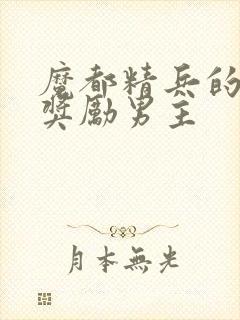 魔都精兵的
奬勵男主
月本無光